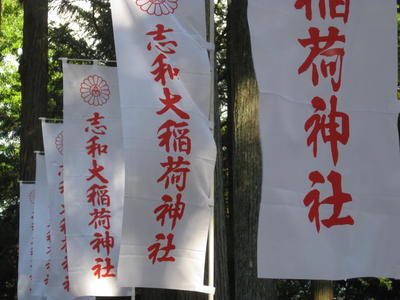 稲荷神社
志和大稲荷神社
志和大稲荷神社